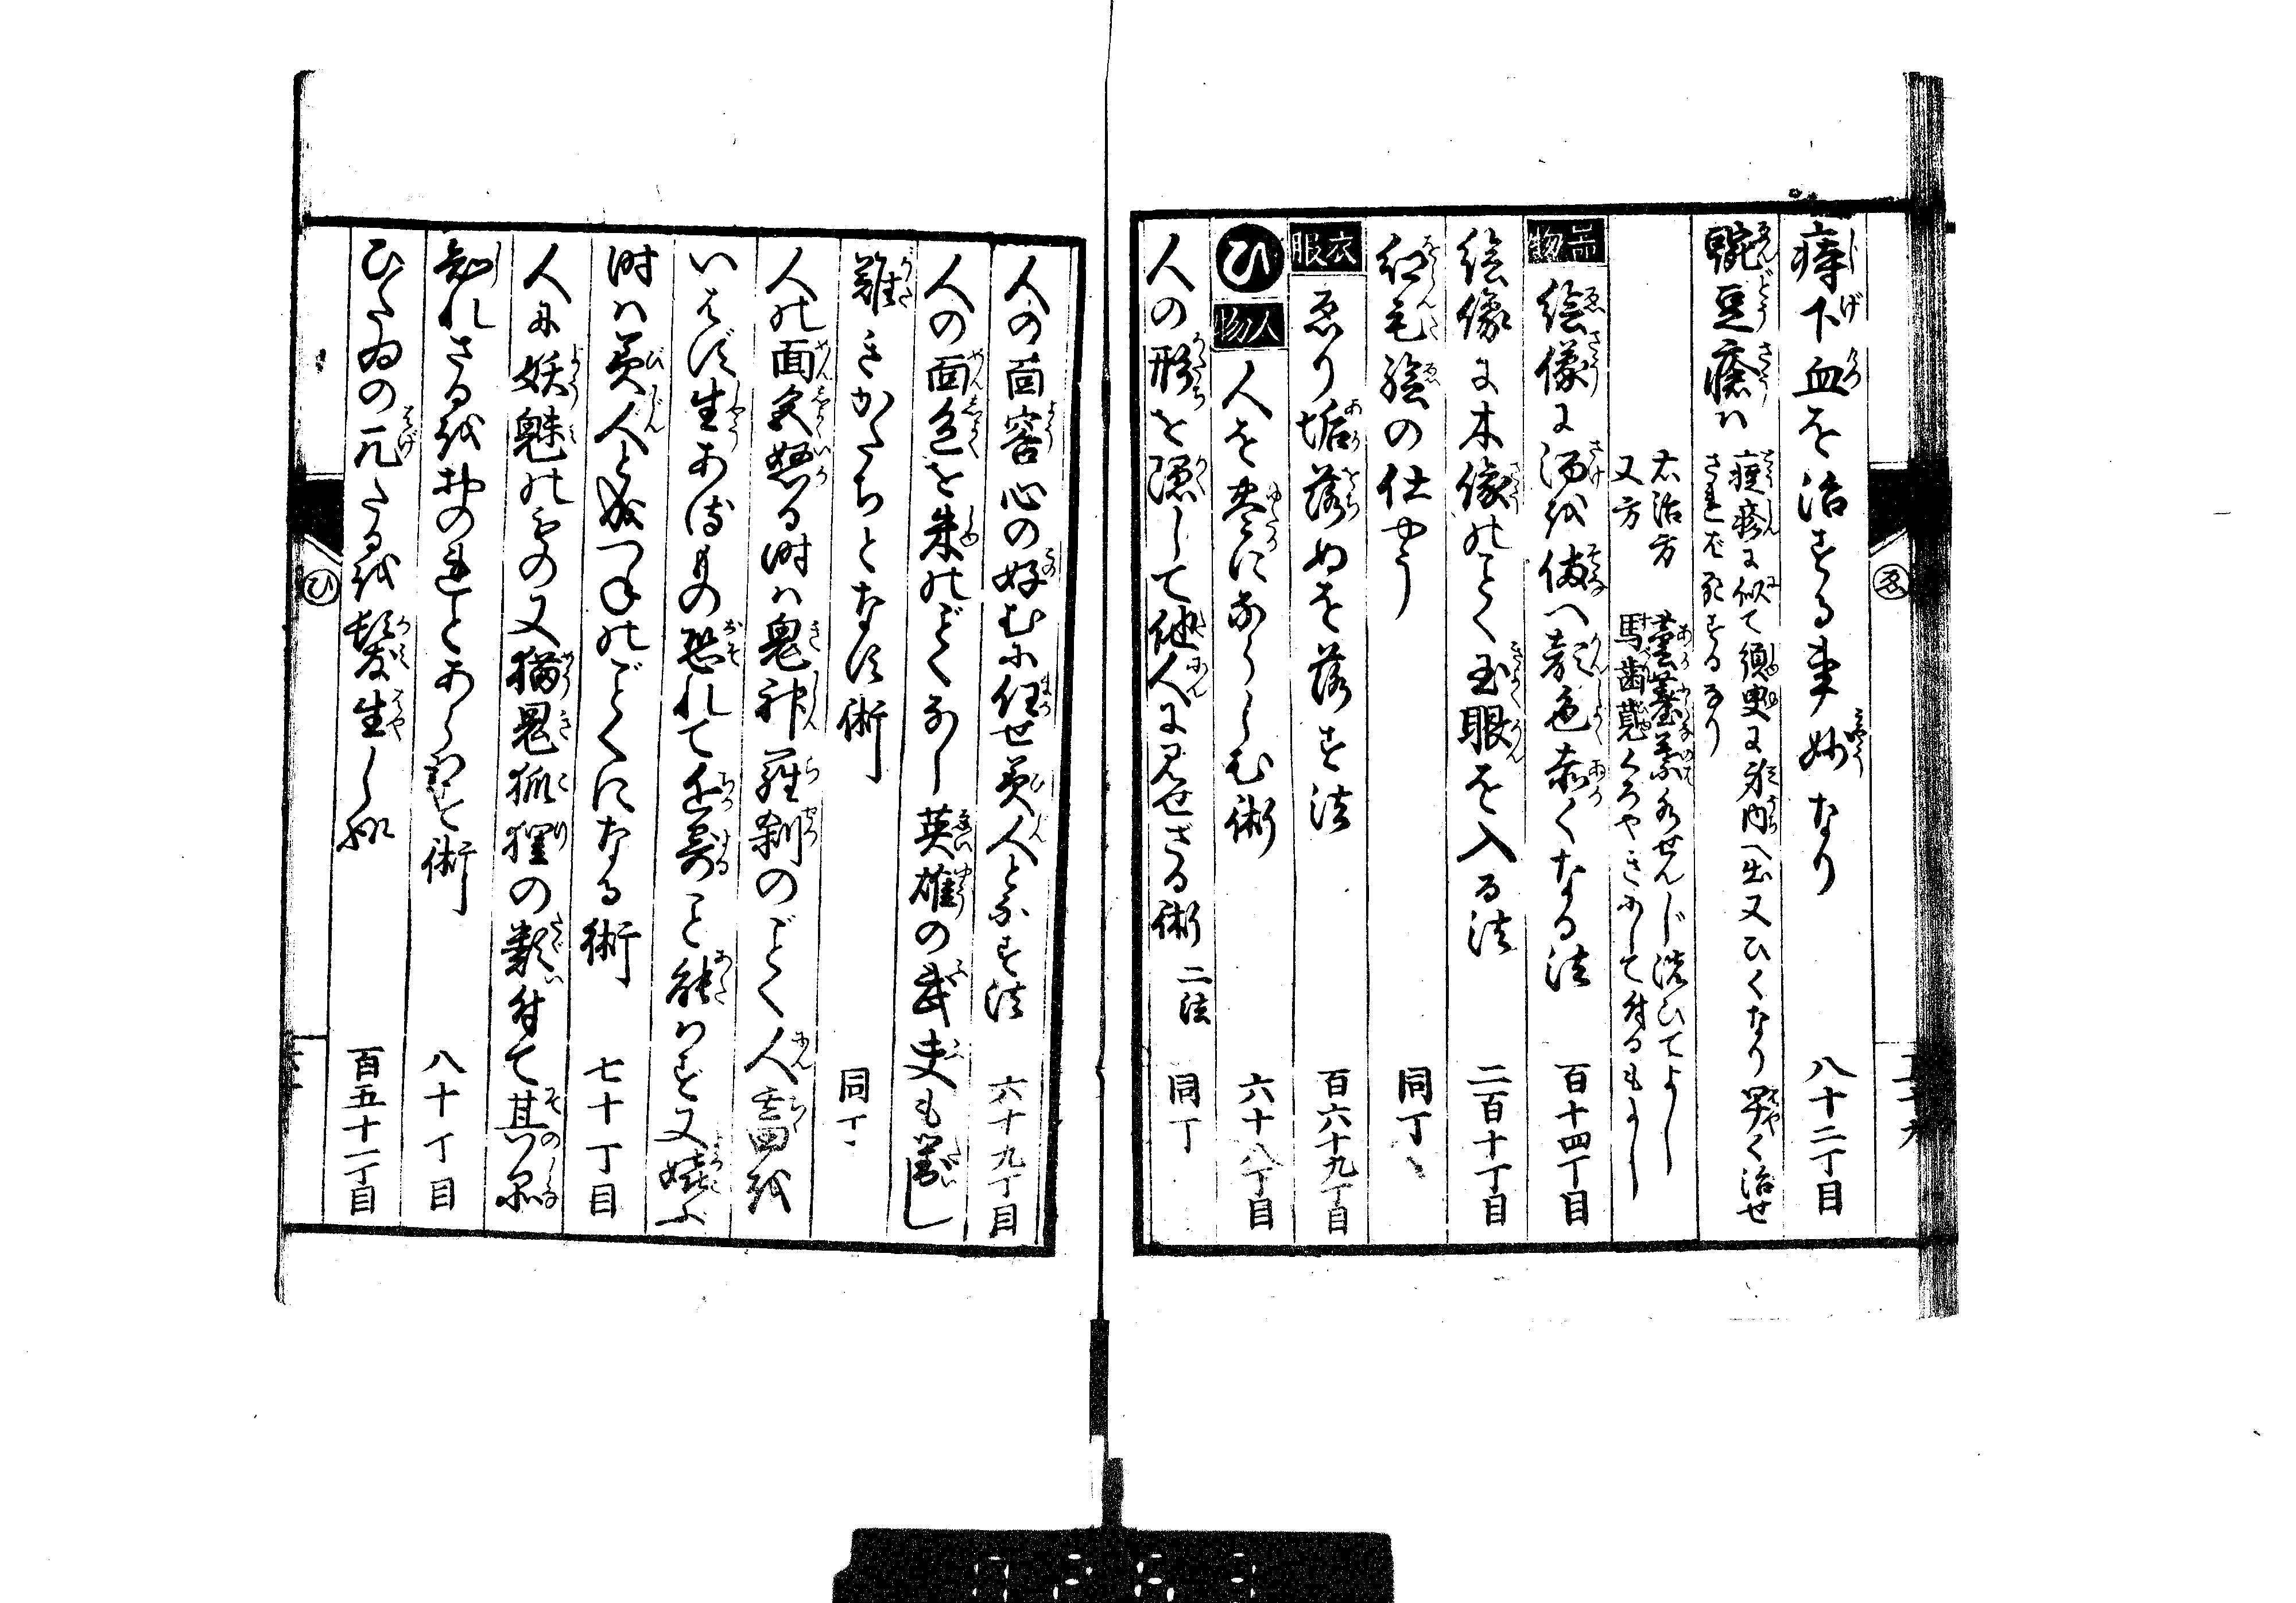 痔下血を治する事妙なり 八十二丁目
豌豆瘡は 痘疹に似て須臾に身内へ出又ひくなり早く治せ
ざれば死するなり
右治方
又方 馬歯莧くろやきにして付るもよし
水せんじ洗ひてよし
品物 絵像に酒を供へ顔色赤くなる法 百十四丁目
絵像に木像のごとく玉眼を入る法 二百十丁目
紅毛絵の仕やう 同丁
衣服 ゑり垢落ぬを落す法 百六十九丁目
ひ 人物 人を豊にならしむ術 六十八丁目
人の形を隠して他人に見せざる術 二法 同丁
人の面容心の好むに任せ美人となす法 六十九丁目
人の面色を朱のごとくなし英雄の武夫も敵し
難きかたちとなす術 同丁
人の面色怒る時は鬼神羅刹のごとく人畜を
いはず生あるもの恐れて近寄こと能はず又嬉ぶ
時は美人と成つねのごとくになる術 七十丁目
人に妖魅のもの又猫鬼狐狸の類付て其
知れざるを物のまことあらはす術 八十丁目
ひたゐの兀たるを髪生し
百五十一丁目
ひ
ゑ